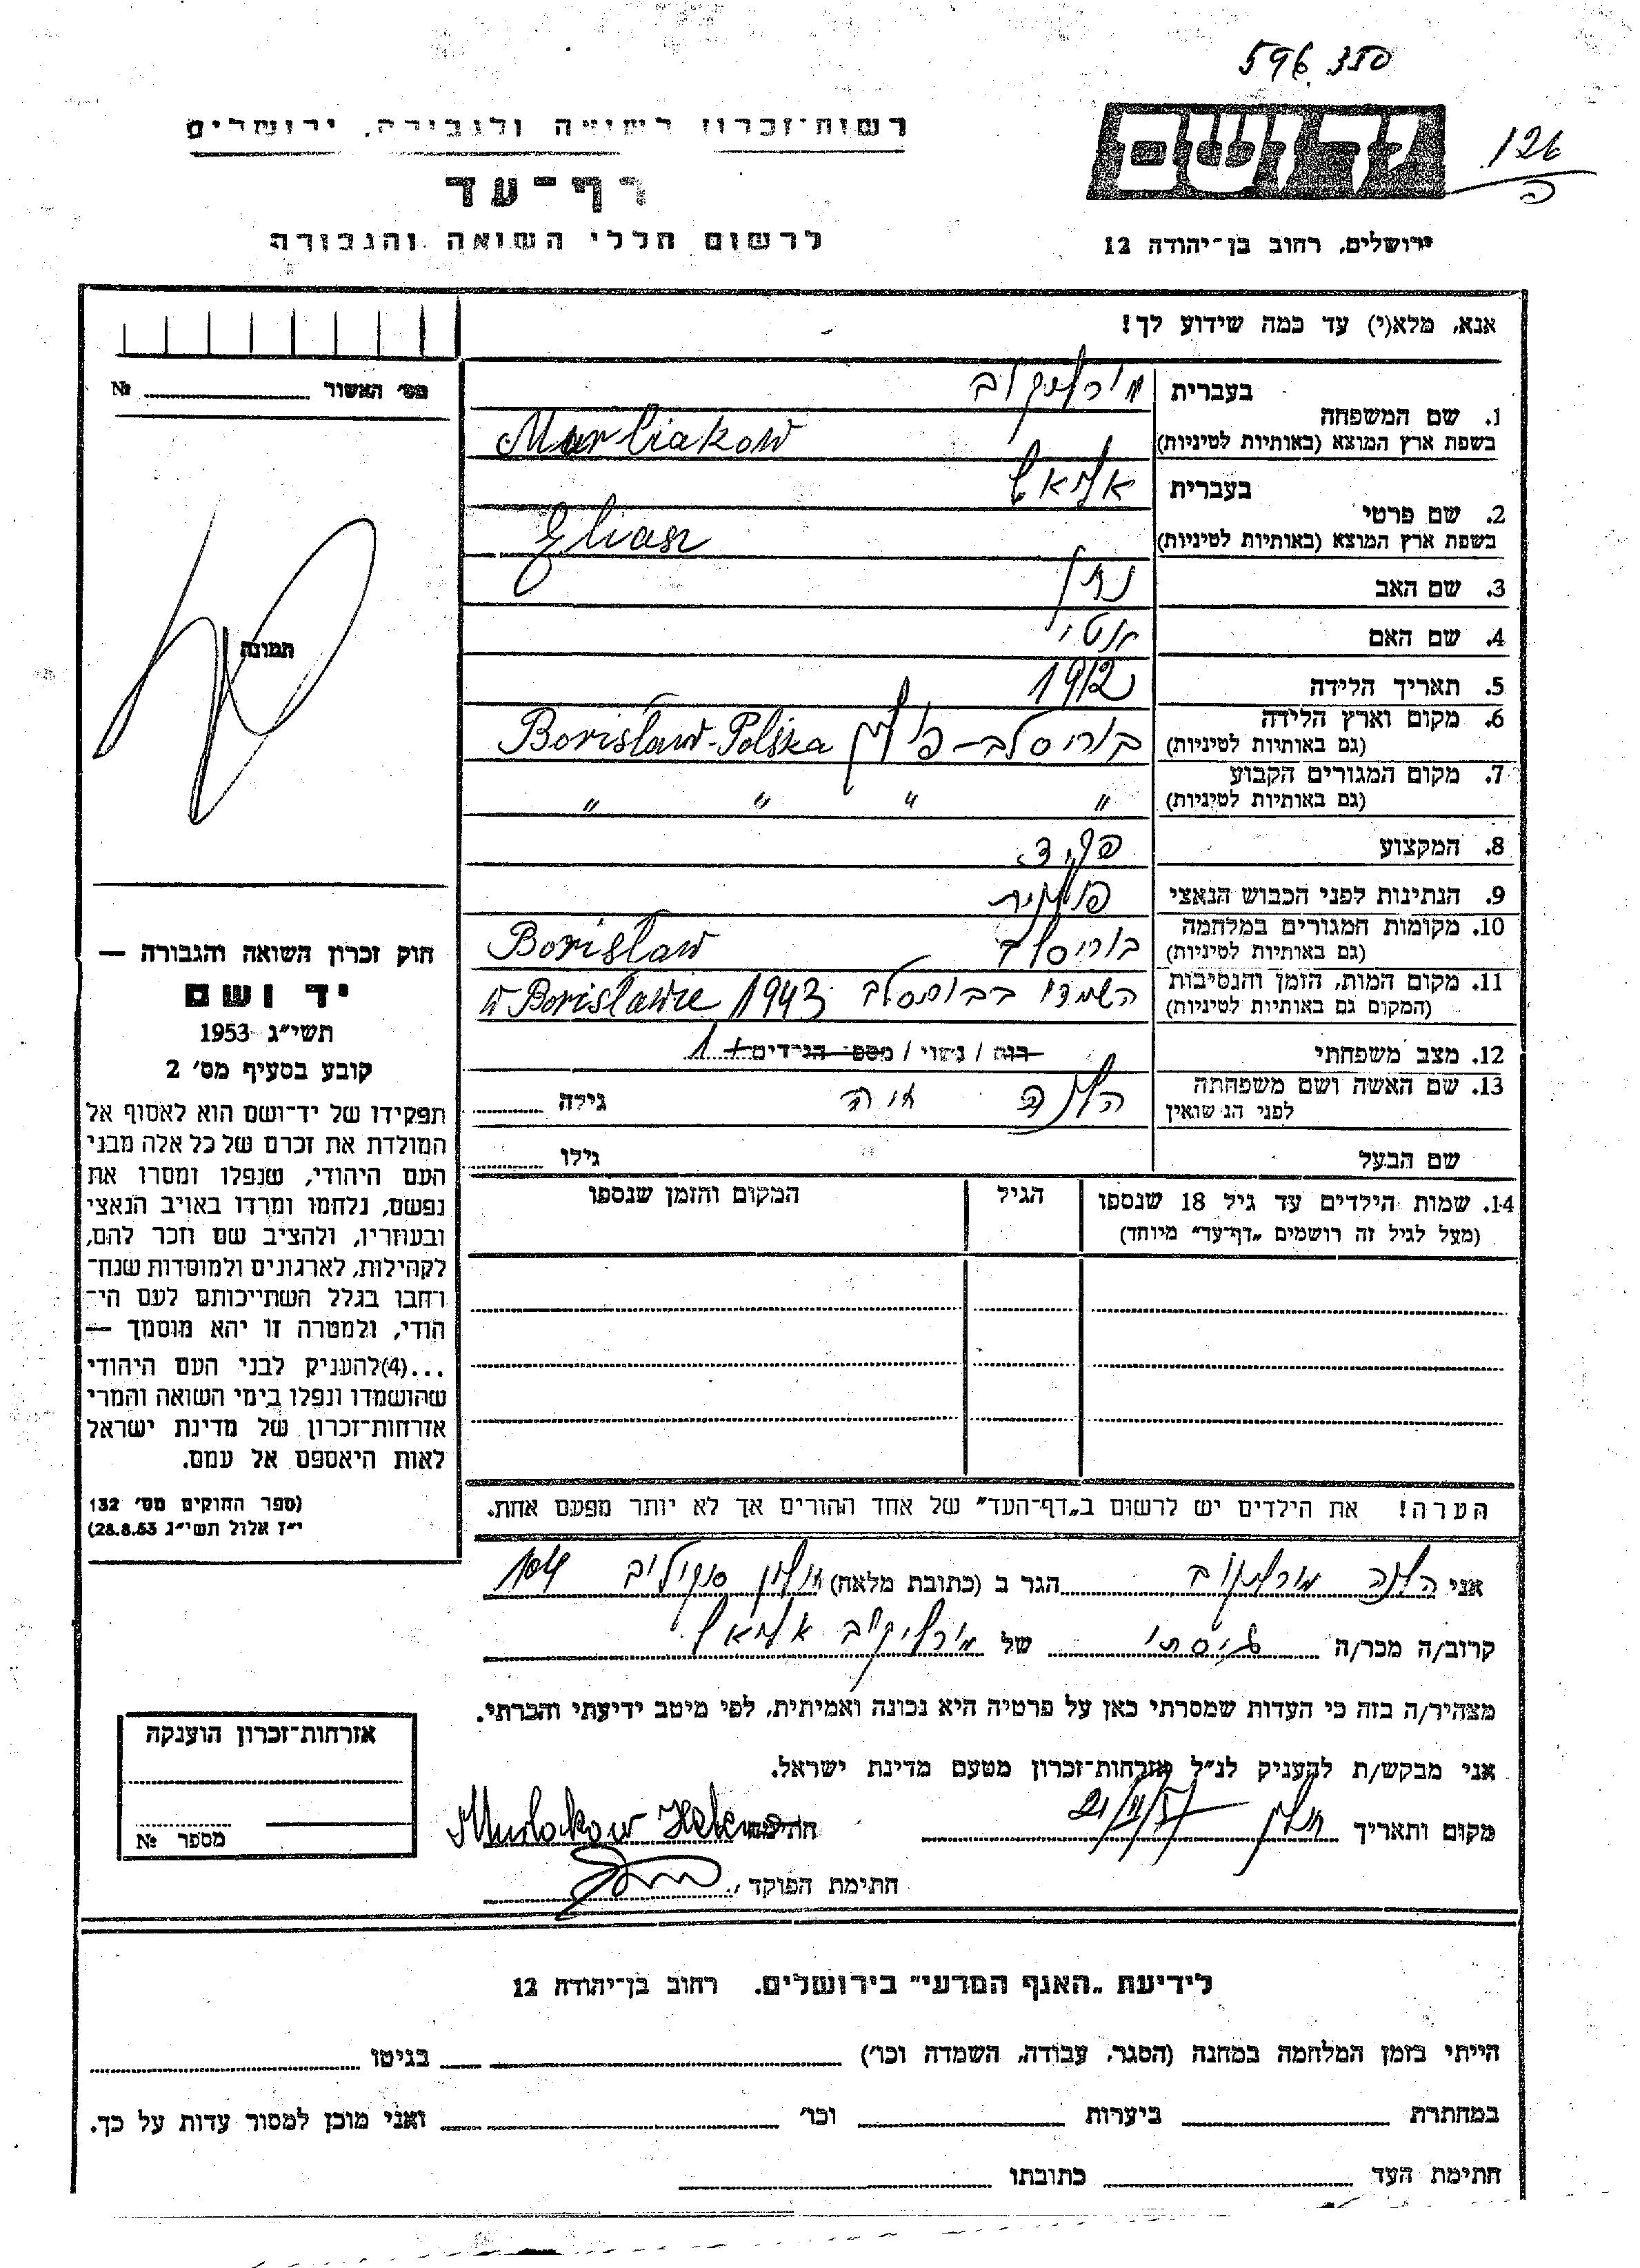 596 350
126
ה
יד ושם
רשות־זכרון לשואה ולגבורה, ירושלים
דף־עד
לרשום חללי השואה והגבורה
ירושלים, רחוב בן־יהודה 12
אנא, מלא(י) עד כמה שידוע לך!
מס׳ האשור № 
תמונה
1. שם המשפחה בעברית
בשפת ארץ המוצא (באותיות לטיניות) Murliakow
2. שם פרטי בעברית אליאש
בשפת ארץ המוצא (באותיות לטיניות) Eliasz
3. שם האב נתן
4. שם האם
5. תאריך הלידה 1912
6. מקום וארץ הלידה (גם באותיות לטיניות) בוריסלב – פולין Borisław-Polska
7. מקום המגורים הקבוע (גם באותיות לטיניות) " " " "
8. המקצוע פקיד
9. הנתינות לפני הכבוש הנאצי פולנית
10. מקומות המגורים במלחמה (גם באותיות לטיניות) בוריסלב Borisław
11. מקום המות, הזמן והנסיבות (המקום גם באותיות לטיניות) השמדו בבוריסלב 1943 w Borisławie
12. מצב משפחתי רוק / נשוי / מספר הילדים + 1
13. שם האשה ושם משפחתה לפני הנשואין הלנה גילה
שם הבעל גילו
14. שמות הילדים עד גיל 18 שנספו הגיל המקום והזמן שנספו
(מעל לגיל זה רושמים „דף־עד״ מיוחד)
חוק זכרון השואה והגבורה —
יד ושם
תשי״ג 1953
קובע בסעיף מס׳ 2
תפקידו של יד־ושם הוא לאסוף אל
המולדת את זכרם של כל אלה מבני
העם היהודי, שנפלו ומסרו את
נפשם, נלחמו ומרדו באויב הנאצי
ובעוזריו, ולהציב שם וזכר להם,
לקהילות, לארגונים ולמוסדות שנח־
רחבו בגלל השתייכותם לעם הי־
הודי, ולמטרה זו יהא מוסמך —
...(4) להעניק לבני העם היהודי
שהושמדו ונפלו בימי השואה והמרי
אזרחות־זכרון של מדינת ישראל
לאות היאספם אל עמם.
(ספר החוקים מס׳ 132
י״ז אלול תשי״ג 28.8.53)
הערה! את הילדים יש לרשום ב„דף־העד״ של אחד ההורים אך לא יותר מפעם אחת.
אני הלנה הגר ב (כתובת מלאה) חולון 104
קרוב/ה מכר/ה גיסתי של אליאש
מצהיר/ה בזה כי העדות שמסרתי כאן על פרטיה היא נכונה ואמיתית, לפי מיטב ידיעתי והכרתי.
אני מבקש/ת להעניק לנ״ל אזרחות־זכרון מטעם מדינת ישראל.
מקום ותאריך חולון חתימה Helena
חתימת הפוקד
אזרחות־זכרון הוענקה
מספר №
לידיעת „האגף המדעי״ בירושלים. רחוב בן־יהודה 12
הייתי בזמן המלחמה במחנה (הסגר, עבודה, השמדה וכו׳) בגיטו
במחתרת ביערות וכו׳ ואני מוכן למסור עדות על כך.
חתימת העד כתובתו